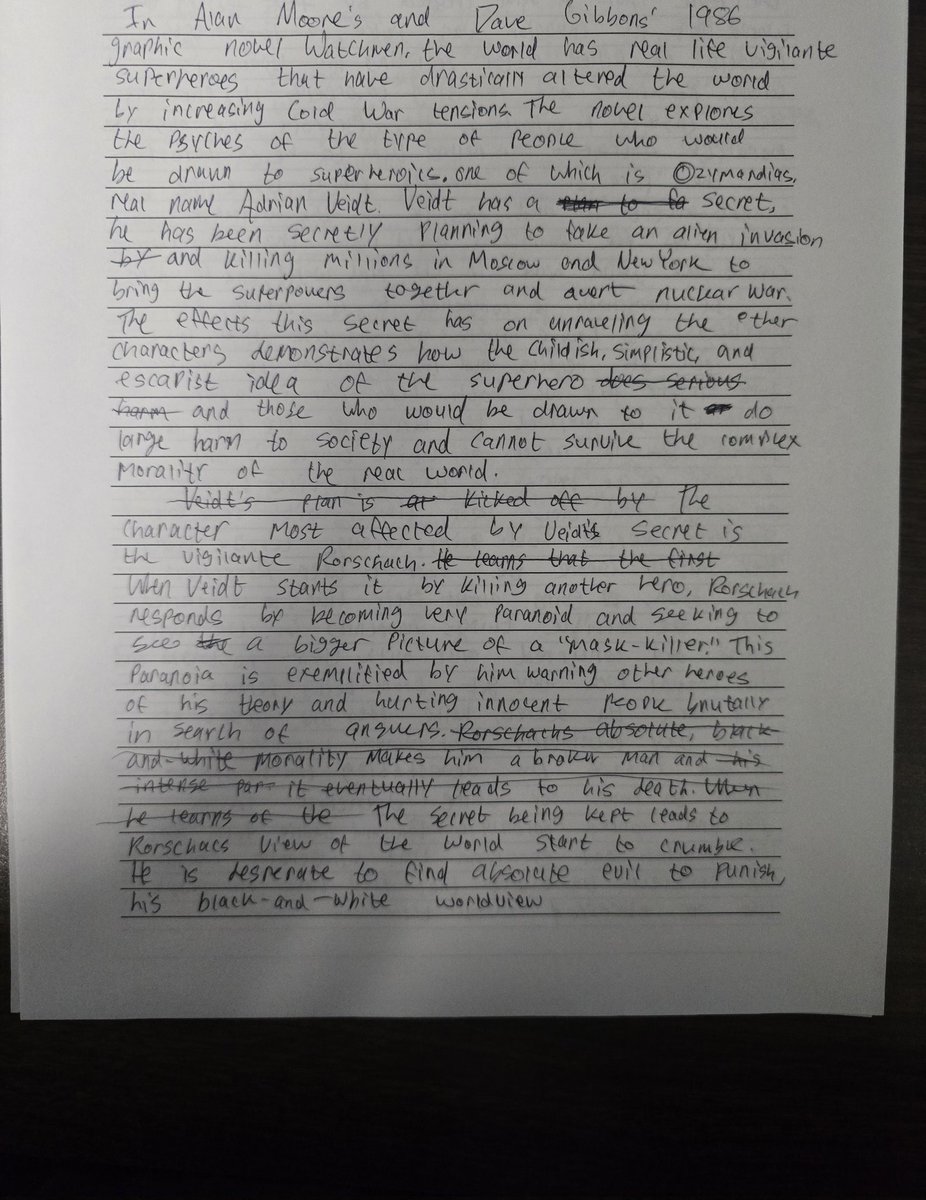 In Alan Moore's and Dave Gibbons' 1986
graphic novel Watchmen, the world has real life vigilante
superheroes that have drastically altered the world
by increasing Cold War tensions. The novel explores
the psyches of the type of people who would
be drawn to superheroics. one of which is Ozymandias,
real name Adrian Veidt. Veidt has a plan to fa secret,
he has been secretly planning to fake an alien invasion
by and killing millions in Moscow and New York to
bring the superpowers together and avert nuclear war.
The effects this secret has on unraveling the other
characters demonstrates how the childish, simplistic, and
escapist idea of the superhero does serious
harm and those who would be drawn to it do
large harm to society and cannot survive the complex
morality of the real world.
Veidt's plan is kicked off by The
character most affected by Veidt's secret is
the vigilante Rorschach. He learns that the first
When Veidt starts it by killing another hero, Rorschach
responds by becoming very paranoid and seeking to
see the a bigger picture of a "mask-killer." This
Paranoia is exemplified by him warning other heroes
of his theory and hurting innocent people brutally
in search of answers. Rorschachs absolute, black-
and-white morality makes him a broken man and his
intense par it eventually leads to his death. When
he learns of the The secret being kept leads to
Rorschacs view of the world start to crumble.
He is desperate to find absolute evil to punish,
his black-and-white worldview